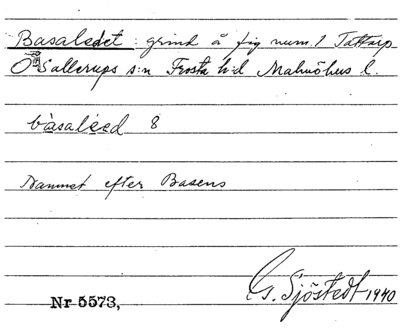 Basaledet : grind å fig num. 1 Tattarp
Ö Sallerups s:n Frosta h:d Malmöhus l.
bàsaléed 8
Namnet efter Basens
G. Sjöstedt 1940
Nr 5573,